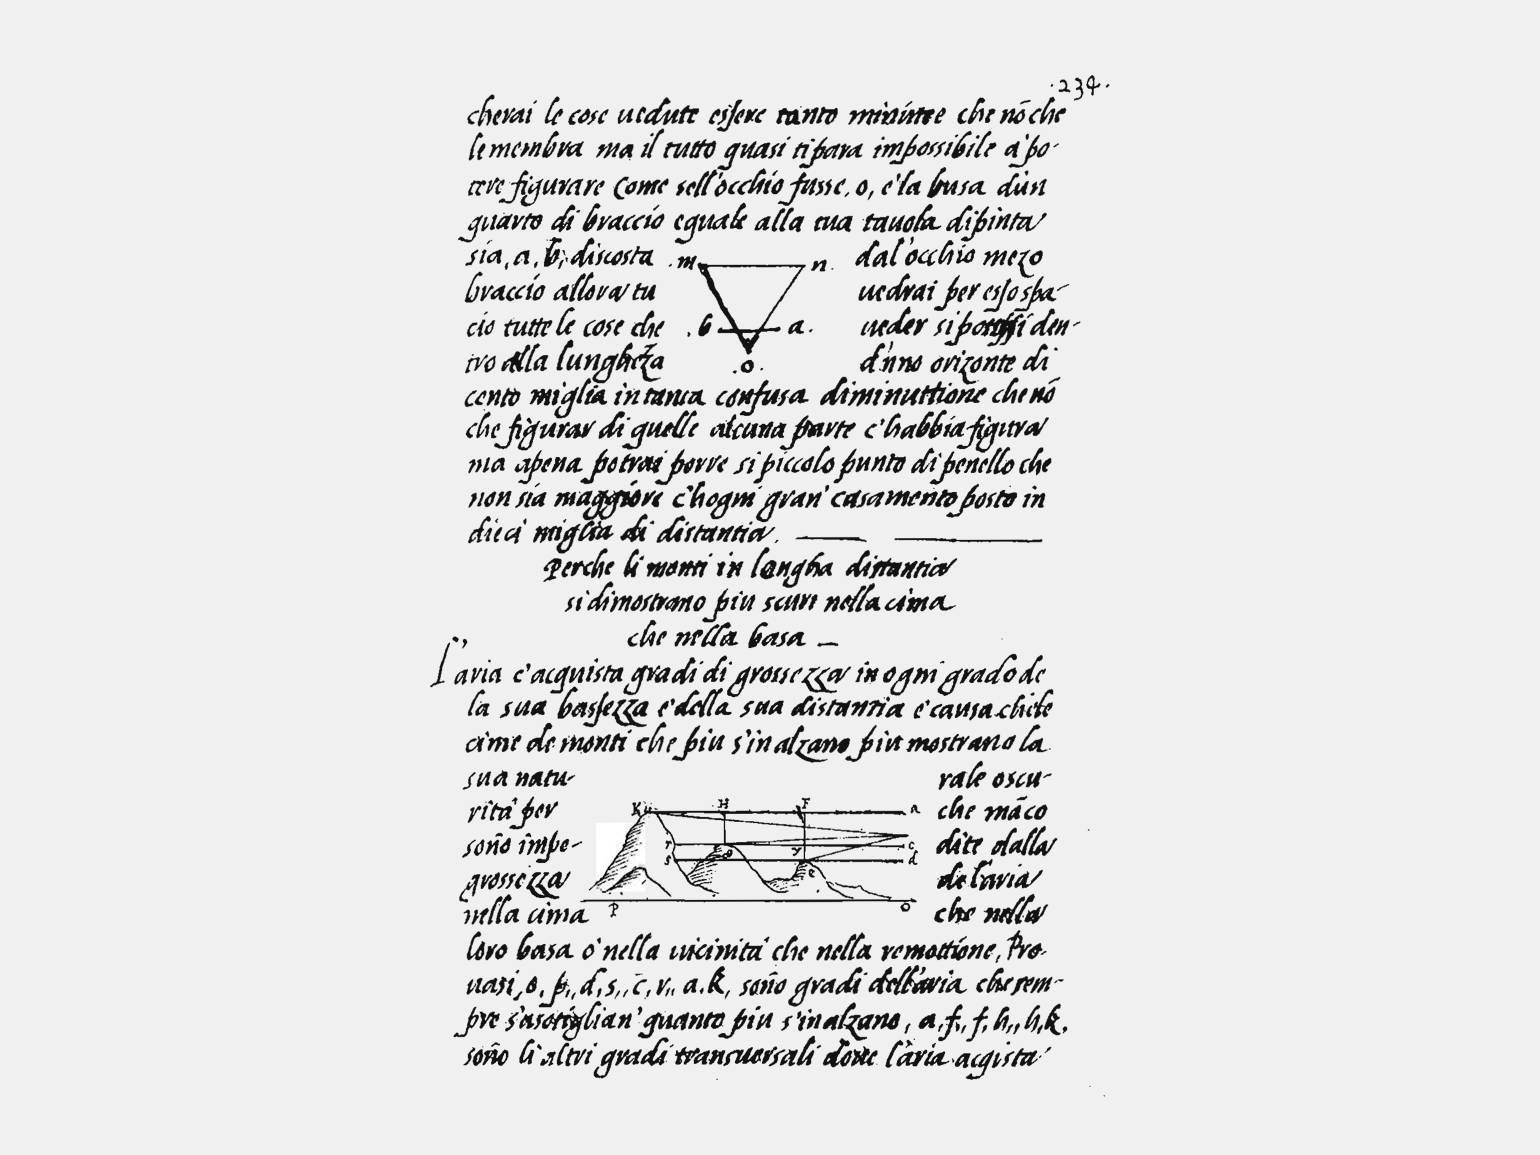 ·234·
cherai le cose uedute essere tanto minute che nō che
le membra ma il tutto quasi ti para impossibile à po-
tere figurare Come sell'occhio fusse, o, e'la busa dùn
quarto di braccio equale alla tua tauola dipinta
sia, a, b, discosta dal'occhio mezo
.m n
braccio allora tu uedrai per esso spa-
cio tutte le cose che ueder si potessi den-
.b a.
tro alla lunghezza d'uno orizonte di
.o.
cento miglia in tanta confusa diminuttione che nō
che figurar di quelle alcuna parte c'habbia figura
ma apena potrai porre si piccolo punto di penello che
non sia maggiore c'hogni gran' casamento posto in
dieci miglia di distantia.
Perche li monti in longha distantia
si dimostrano piu scuri nella cima
che nella basa
L'aria c'acquista gradi di grossezza in ogni grado de
la sua bassezza e'della sua distantia e'causa che le
cime de monti che piu s'inalzano piu mostrano la
sua natu- rale oscu-
rità per che māco
K H F a
soño impe- dite dalla
r c
s y d
grossezza de l'aria
e
nella cima che nella
P o
loro basa o' nella uicinita' che nella remottione, Pro-
uasi, o, p,, d, s,, c, r,, a.k, soño gradi dell'aria che sem-
pre s'asotiglian' quanto piu s'inalzano, a, f,, f, h,, h, k.
soño li altri gradi transuersali doue l'aria acqista